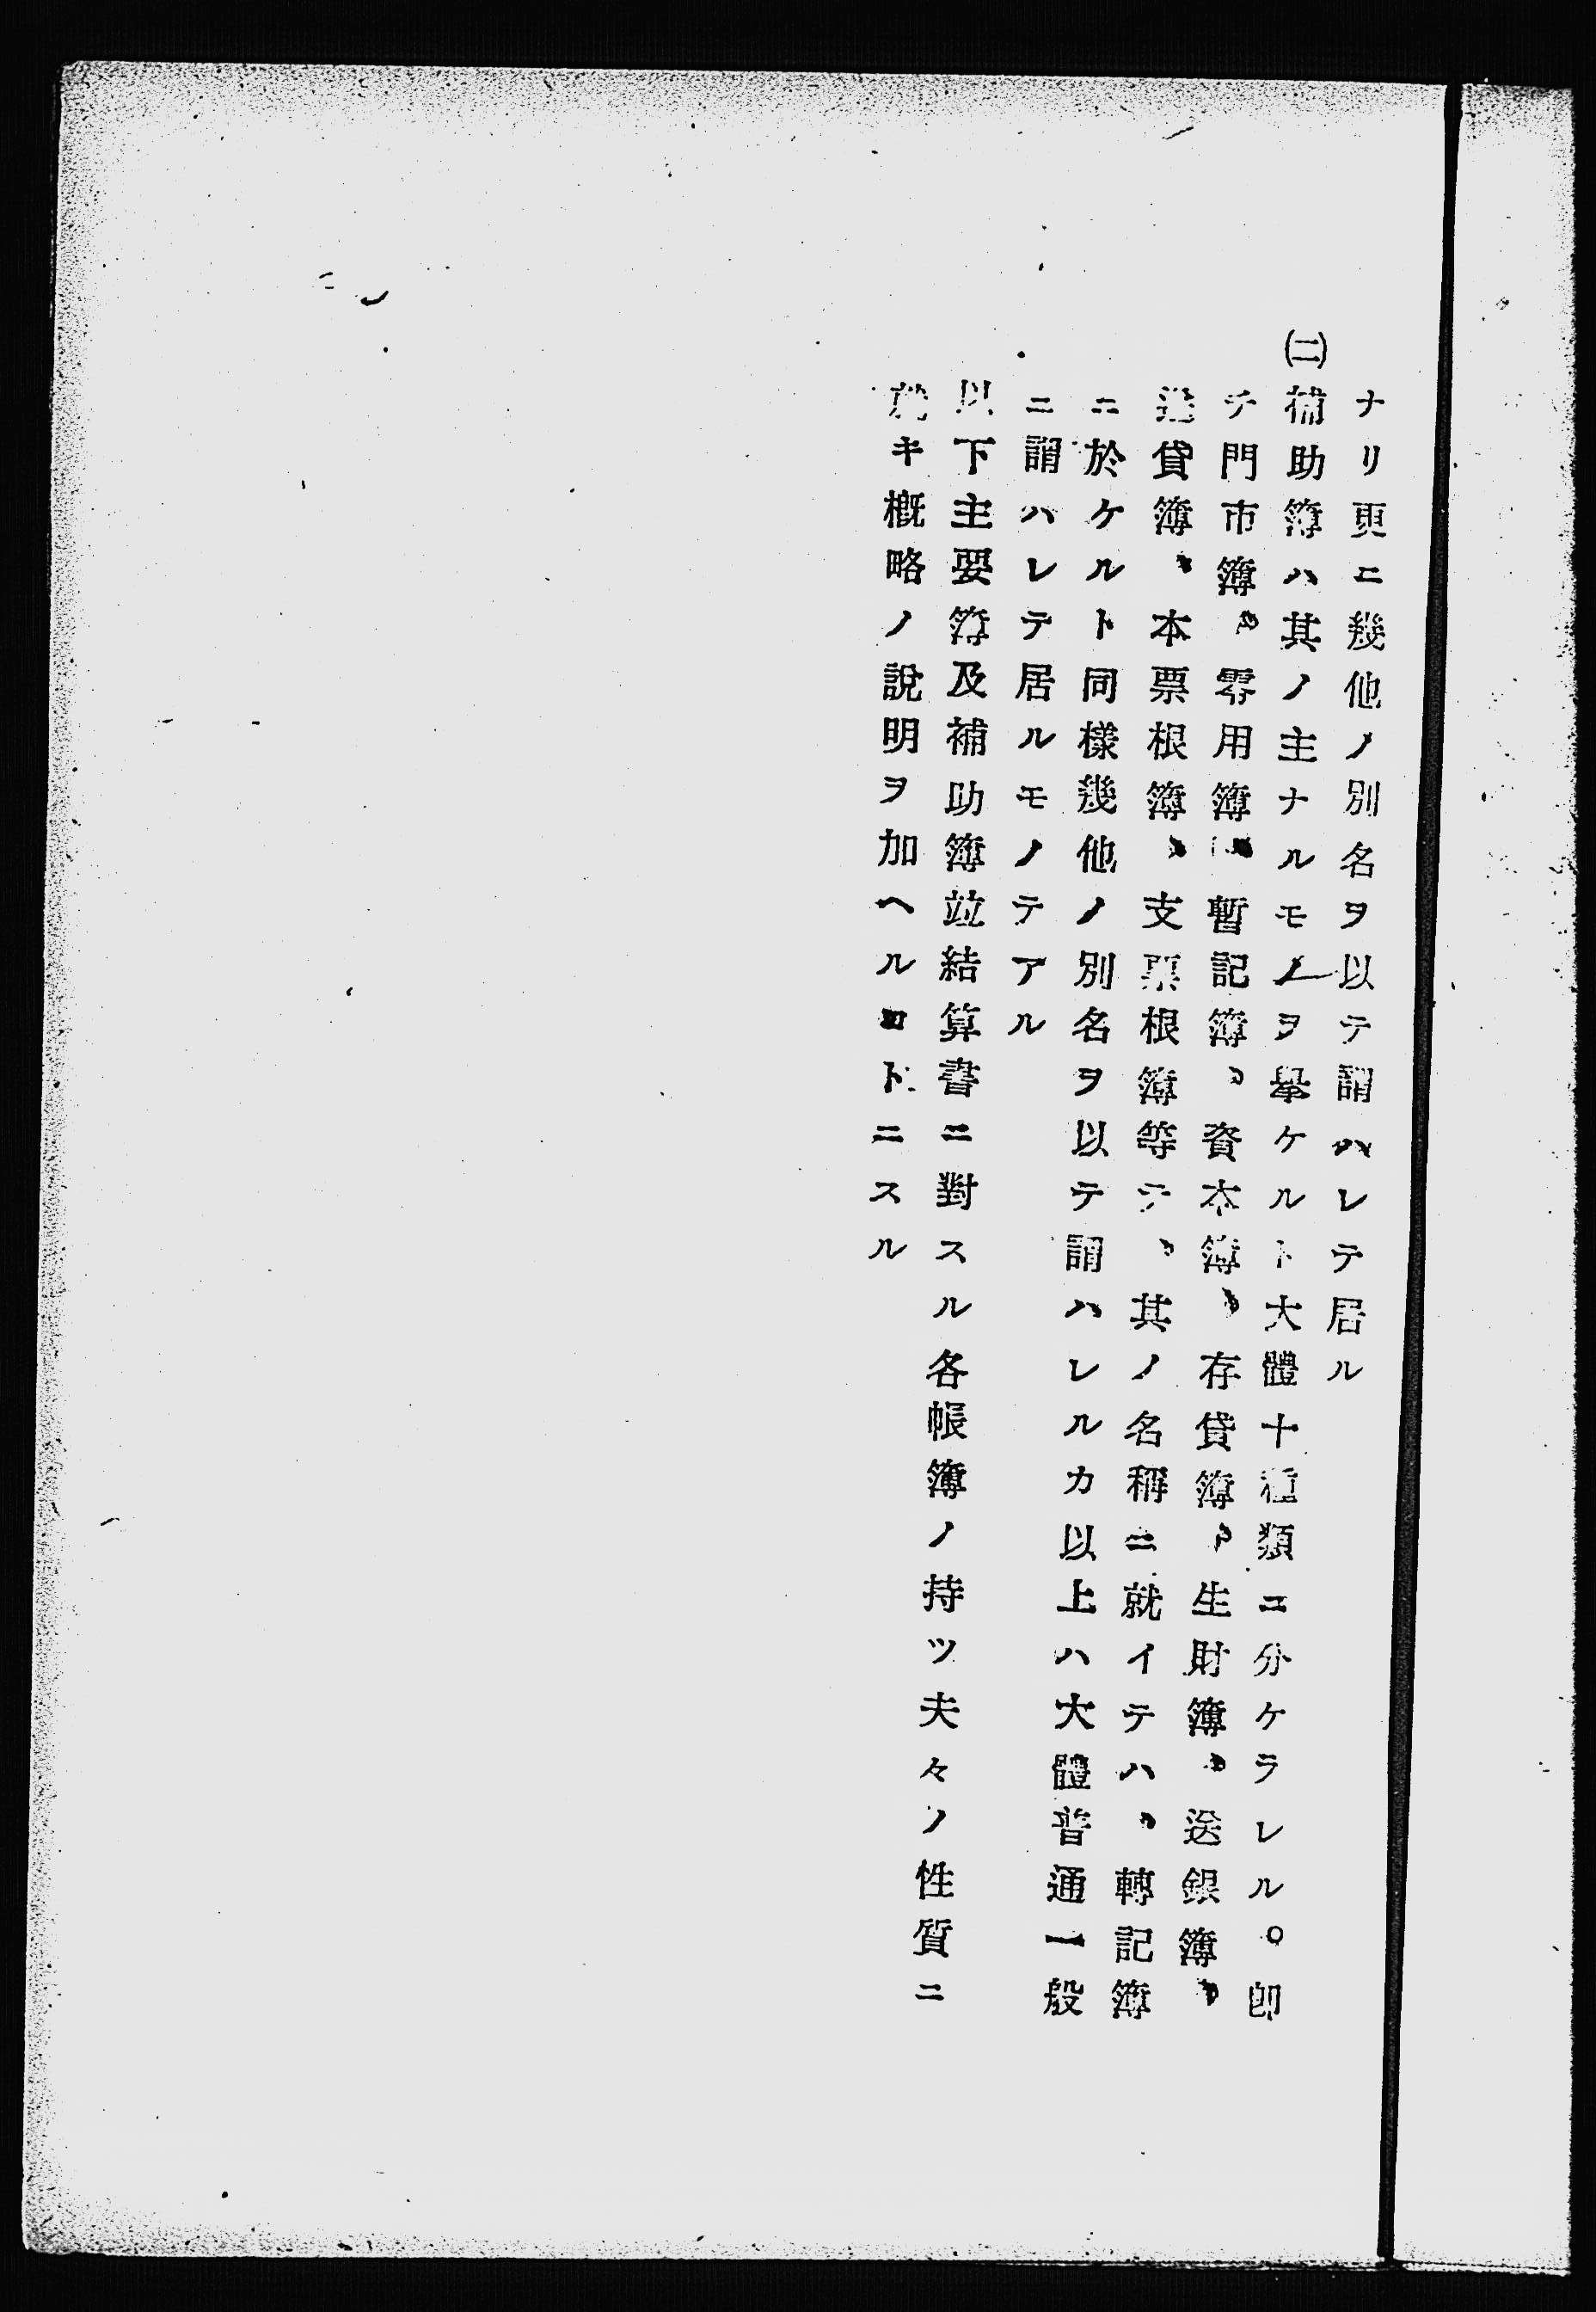 ナリ更ニ幾他ノ別名ヲ以テ謂ハレテ居ル
㈡補助簿ハ其ノ主ナルモノヲ擧ケルト大體十種類ニ分ケラレル。卽
チ門市簿、零用簿、暫記簿、資本簿、存貸簿、生財簿、送銀簿、
送貸簿、本票根簿、支票根簿等テ、其ノ名稱ニ就イテハ、轉記簿
ニ於ケルト同樣幾他ノ別名ヲ以テ謂ハレルカ以上ハ大體普通一般
ニ謂ハレテ居ルモノテアル
以下主要簿及補助簿竝結算書ニ對スル各帳簿ノ持ツ夫々ノ性質ニ
就キ概略ノ說明ヲ加ヘルコトニスル